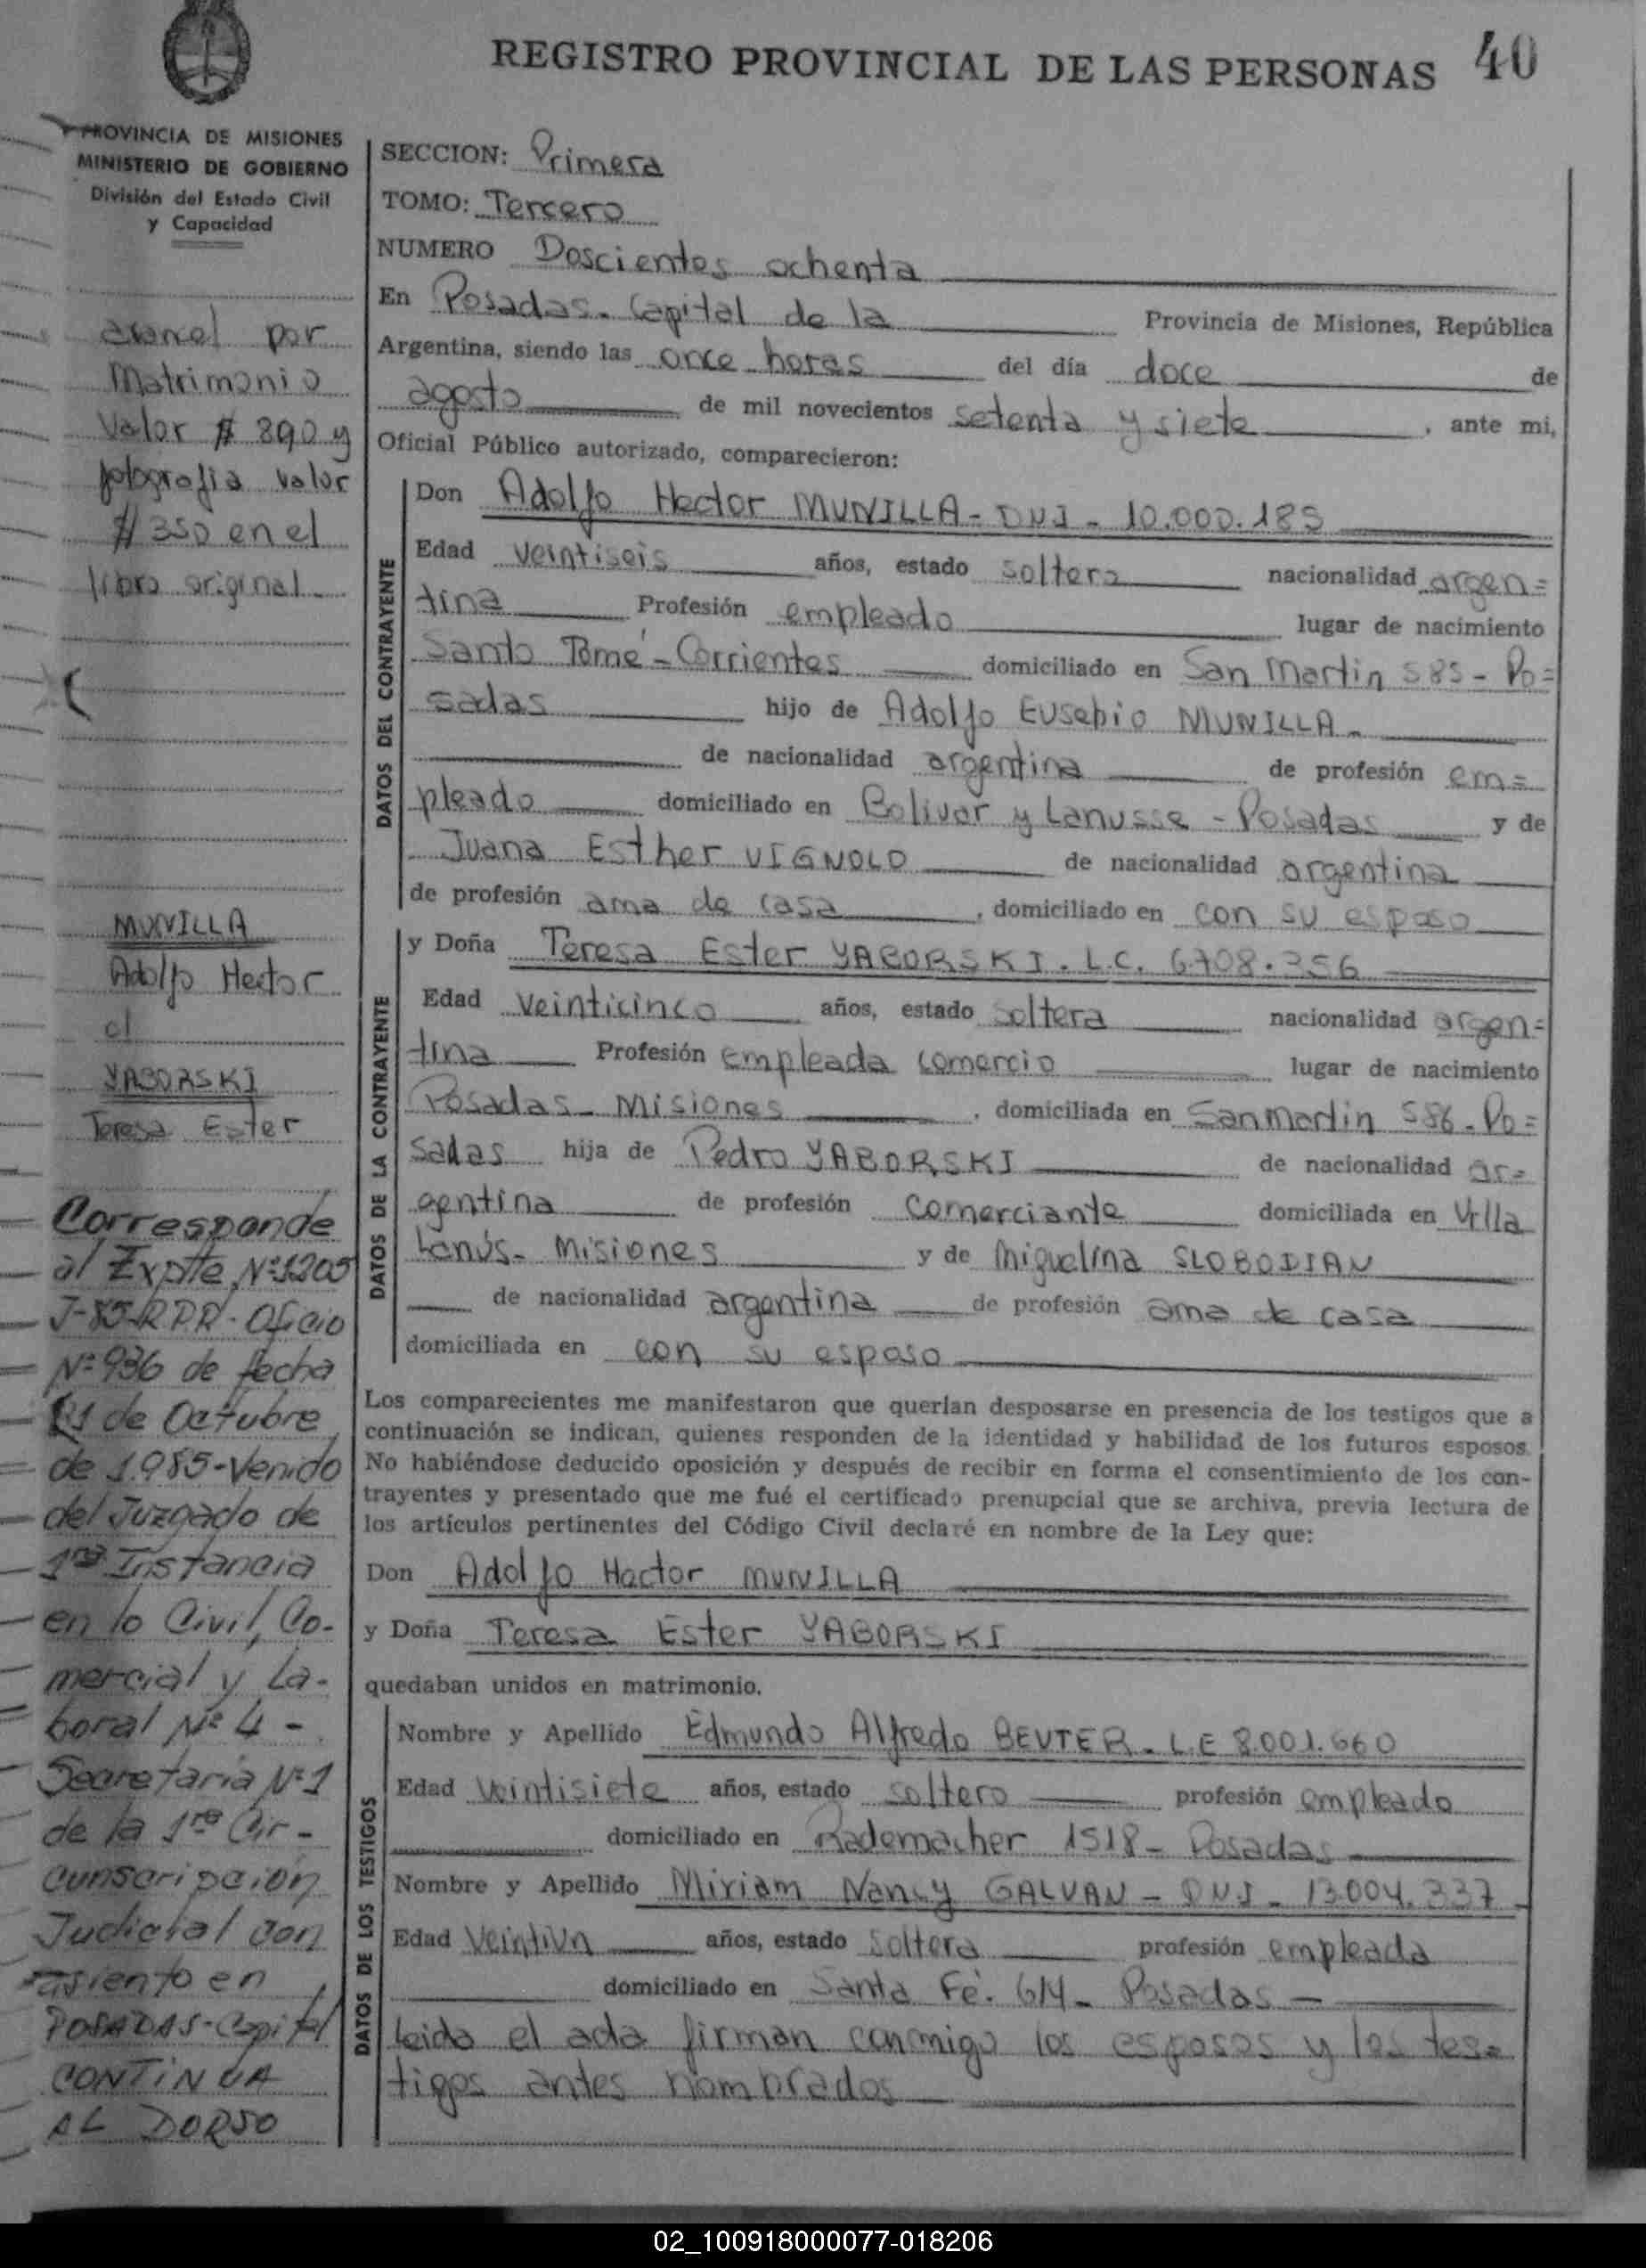 REGISTRO PROVINCIAL DE LAS PERSONAS 40
PROVINCIA DE MISIONES
MINISTERIO DE GOBIERNO
División del Estado Civil
y Capacidad
arancel por
Matrimonio
Valor $ 890 y
fotografia valor
$ 350 en el
libro original.
MUNILLA
Adolfo Hector
c/
YABORSKI
Teresa Ester
Corresponde
al Expte Nº 1205
J-85-R.P.P. Oficio
Nº 936 de fecha
de Octubre
de 1.985-Venido
del Juzgado de
1ra Instancia
en lo Civil, Co-
mercial y La-
boral Nº 4 -
Secretaria Nº 1
de la 1ra Cir-
cunscripción
Judicial con
asiento en
POSADAS-Capital
CONTINUA
AL DORSO
SECCION: Primera
TOMO: Tercero
NUMERO Doscientos ochenta
En Posadas. Capital de la Provincia de Misiones, República
Argentina, siendo las once horas del día doce de
agosto de mil novecientos setenta y siete , ante mi,
Oficial Público autorizado, comparecieron:
DATOS DEL CONTRAYENTE
Don Adolfo Hector MUNILLA - DNI - 10.000.185
Edad veintiseis años, estado soltero nacionalidad argen=
tina Profesión empleado lugar de nacimiento
Santo Tomé - Corrientes domiciliado en San Martin 585 - Po=
sadas hijo de Adolfo Eusebio MUNILLA -
de nacionalidad argentina de profesión em=
pleado domiciliado en Bolivar y Lanusse - Posadas y de
Juana Esther VIGNOLO de nacionalidad argentina
de profesión ama de casa , domiciliado en con su esposo
DATOS DE LA CONTRAYENTE
y Doña Teresa Ester YABORSKI. L.C. 6.708.256
Edad veinticinco años, estado soltera nacionalidad argen=
tina Profesión empleada comercio lugar de nacimiento
Posadas - Misiones , domiciliada en San Martin 586 - Po=
sadas hija de Pedro YABORSKI de nacionalidad ar=
gentina de profesión comerciante domiciliada en Villa
Lanús - Misiones y de Miguelina SLOBODIAN
de nacionalidad argentina de profesión ama de casa
domiciliada en con su esposo
Los comparecientes me manifestaron que querían desposarse en presencia de los testigos que a
continuación se indican, quienes responden de la identidad y habilidad de los futuros esposos.
No habiéndose deducido oposición y después de recibir en forma el consentimiento de los con-
trayentes y presentado que me fué el certificado prenupcial que se archiva, previa lectura de
los artículos pertinentes del Código Civil declaré en nombre de la Ley que:
Don Adolfo Hector MUNILLA
y Doña Teresa Ester YABORSKI
quedaban unidos en matrimonio.
DATOS DE LOS TESTIGOS
Nombre y Apellido Edmundo Alfredo BEUTER - L.E 8.001.660
Edad veintisiete años, estado soltero profesión empleado
domiciliado en Rademacher 1518 - Posadas
Nombre y Apellido Miriam Nancy GALVAN - DNI - 13.004.337
Edad veintiun años, estado soltera profesión empleada
domiciliado en Santa Fé. 614 - Posadas -
leida el acta firman conmigo los esposos y los tes=
tigos antes nombrados
02_100918000077-018206